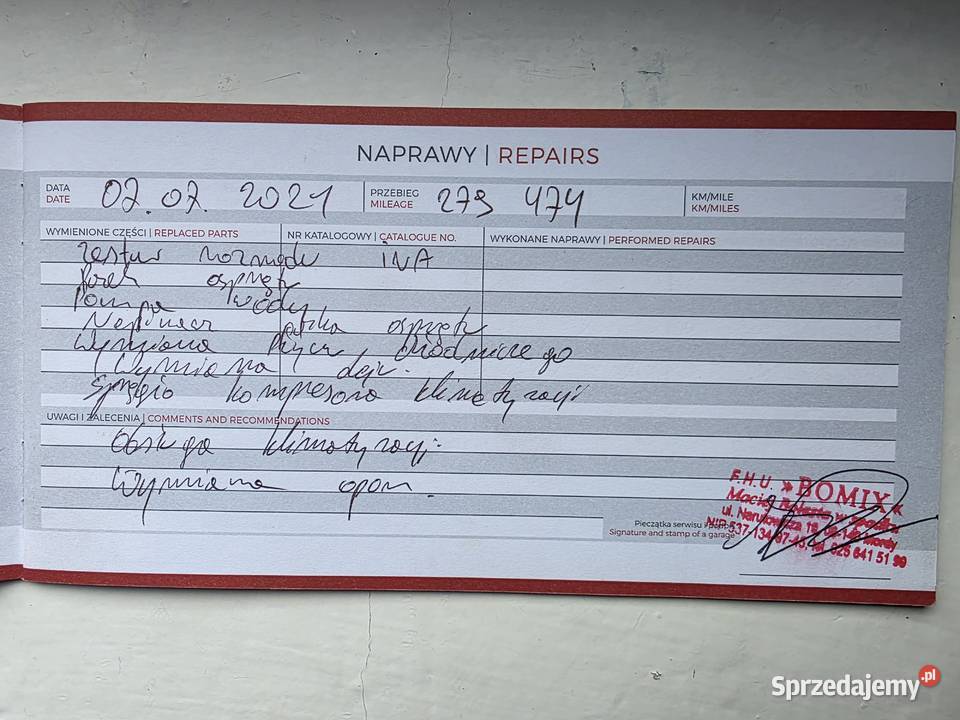 NAPRAWY | REPAIRS
DATA
DATE
07.07. 2021
PRZEBIEG
MILEAGE
279 474
KM/MILE
KM/MILES
WYMIENIONE CZĘŚCI | REPLACED PARTS
NR KATALOGOWY | CATALOGUE NO.
WYKONANE NAPRAWY | PERFORMED REPAIRS
zestaw rozrządu INA
Pasek osprzętu
Pompa wody
Napinacz paska osprzętu
Wymiana płynu chłodniczego
Wymiana olej.
Sprzęgło kompresora klimatyzacji
UWAGI I ZALECENIA | COMMENTS AND RECOMMENDATIONS
Obsługa klimatyzacji
Wymiana opon.
F.H.U. »BOMIX«
Maciej
ul. Narutowicza
NIP 537-134
025 641 51 99
Pieczątka serwisu i podpis
Signature and stamp of a garage
Sprzedajemy.pl